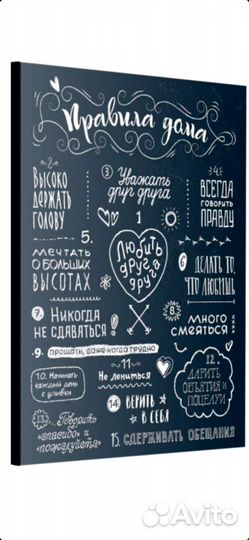 Правила дома
~2~
Высоко
держать
голову
3 Уважать
друг друга
4.
Всегда
говорить
правду
1
5.
Мечтать
о больших
высотах
Любить
друг
друга
6. Делать то,
что любишь
7. Никогда
не сдаваться!
8.
много
смеяться
9. прощать, даже когда трудно
10. Начинать
каждый день
с улыбки
11
Не лениться
12.
Дарить
объятия и
поцелуи
13. Говорить
«спасибо» и
«пожалуйста»
14 Верить
в себя
15. Сдерживать обещания
Avito